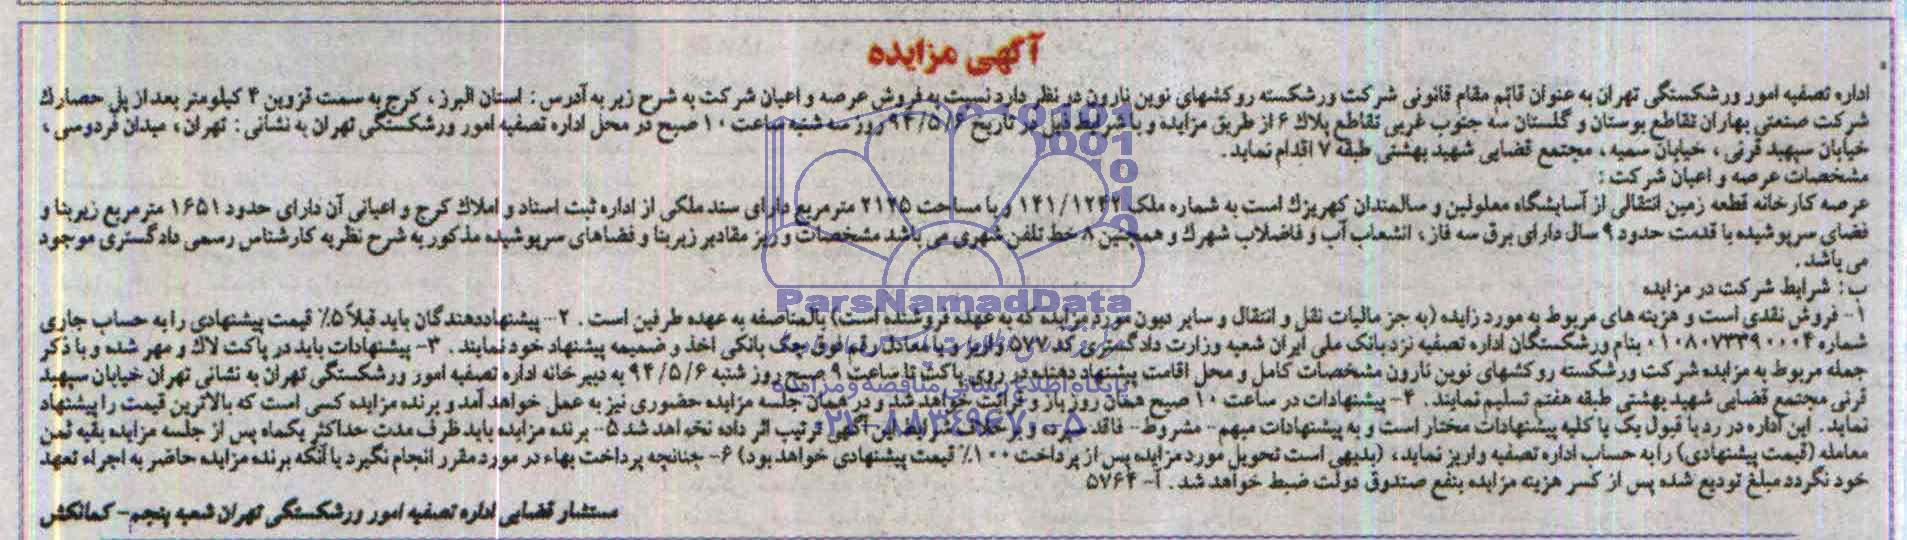 آگهی مزایده
اداره تصفیه امور ورشکستگی تهران به عنوان قائم مقام قانونی شرکت ورشکسته روکشهای نوین نارون در نظر دارد نسبت به فروش عرصه و اعیان شرکت به شرح زیر به آدرس : استان البرز ، کرج به سمت قزوین ۴ کیلومتر بعد از پل حصارک
شرکت صنعتی بهاران تقاطع بوستان و گلستان سه جنوب غربی تقاطع پلاک ۶ از طریق مزایده و با شرایط ذیل در تاریخ ۹۴/۵/۶ روز سه شنبه ساعت ۱۰ صبح در محل اداره تصفیه امور ورشکستگی تهران به نشانی : تهران ، میدان فردوسی ،
خیابان سپهبد قرنی ، خیابان سمیه ، مجتمع قضایی شهید بهشتی طبقه ۷ اقدام نماید .
مشخصات عرصه و اعیان شرکت :
عرصه کارخانه قطعه زمین انتقالی از آسایشگاه معلولین و سالمندان کهریزک است به شماره ملک ۱۴۱/۱۲۴۲ و با مساحت ۲۱۲۵ مترمربع دارای سند ملکی از اداره ثبت اسناد و املاک کرج و اعیانی آن دارای حدود ۱۶۵۱ مترمربع زیربنا و
فضای سرپوشیده با قدمت حدود ۹ سال دارای برق سه فاز ، انشعاب آب و فاضلاب شهرک و همچنین ۸ خط تلفن شهری می باشد مشخصات و ریز مقادیر زیربنا و فضاهای سرپوشیده مذکور به شرح نظریه کارشناس رسمی دادگستری موجود
می باشد .
ب : شرایط شرکت در مزایده
۱- فروش نقدی است و هزینه های مربوط به مورد زایده (به جز مالیات نقل و انتقال و سایر دیون مورد مزایده که به عهده فروشنده است) بالمناصفه به عهده طرفین است . ۲- پیشنهاددهندگان باید قبلاً ۵٪ قیمت پیشنهادی را به حساب جاری
شماره ۰۱۰۸۰۷۳۳۹۰۰۰۴ بنام ورشکستگان اداره تصفیه نزد بانک ملی ایران شعبه وزارت دادگستری کد ۵۷۷ واریز و یا معادل رقم فوق چک بانکی اخذ و ضمیمه پیشنهاد خود نمایند . ۳- پیشنهادات باید در پاکت لاک و مهر شده و با ذکر
جمله مربوط به مزایده شرکت ورشکسته روکشهای نوین نارون مشخصات کامل و محل اقامت پیشنهاد دهنده در روی پاکت تا ساعت ۹ صبح روز شنبه ۹۴/۵/۶ به دبیرخانه اداره تصفیه امور ورشکستگی تهران به نشانی تهران خیابان سپهبد
قرنی مجتمع قضایی شهید بهشتی طبقه هفتم تسلیم نمایند . ۴- پیشنهادات در ساعت ۱۰ صبح همان روز باز و قرائت خواهد شد و در همان جلسه مزایده حضوری نیز به عمل خواهد آمد و برنده مزایده کسی است که بالاترین قیمت را پیشنهاد
نماید . این اداره در رد یا قبول یک یا کلیه پیشنهادات مختار است و به پیشنهادات مبهم- مشروط- فاقد سپرده و برخلاف شرایط این آگهی ترتیب اثر داده نخواهد شد ۵- برنده مزایده باید ظرف مدت حداکثر یکماه پس از جلسه مزایده بقیه ثمن
معامله (قیمت پیشنهادی) را به حساب اداره تصفیه واریز نماید ، (بدیهی است تحویل مورد مزایده پس از پرداخت ۱۰۰٪ قیمت پیشنهادی خواهد بود) ۶- چنانچه پرداخت بهاء در مورد مقرر انجام نگیرد یا آنکه برنده مزایده حاضر به اجراء تعهد
خود نگردد مبلغ تودیع شده پس از کسر هزینه مزایده بنفع صندوق دولت ضبط خواهد شد . آ- ۵۷۶۴
مستشار قضایی اداره تصفیه امور ورشکستگی تهران شعبه پنجم- کمانکش
ParsNamadData
پایگاه اطلاع رسانی مناقصه و مزایده
۰۲۱-۸۸۳۴۹۶۷۰-۵